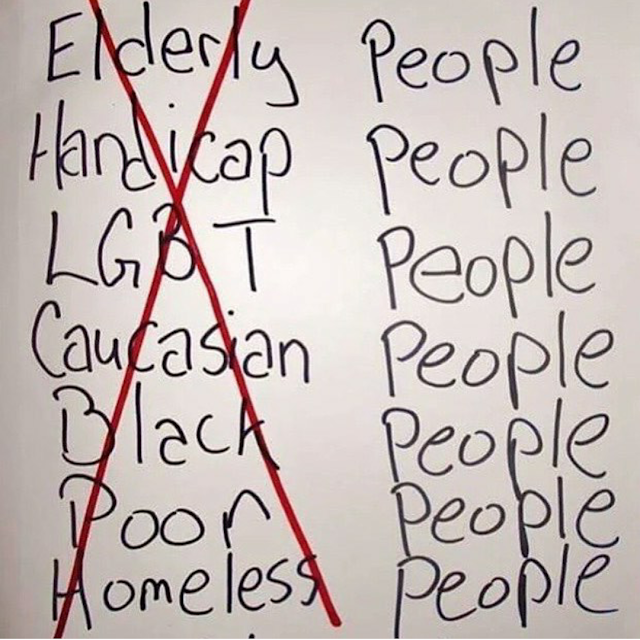 Elderly People
Handicap People
LGBT People
Caucasian People
Black People
Poor People
Homeless People